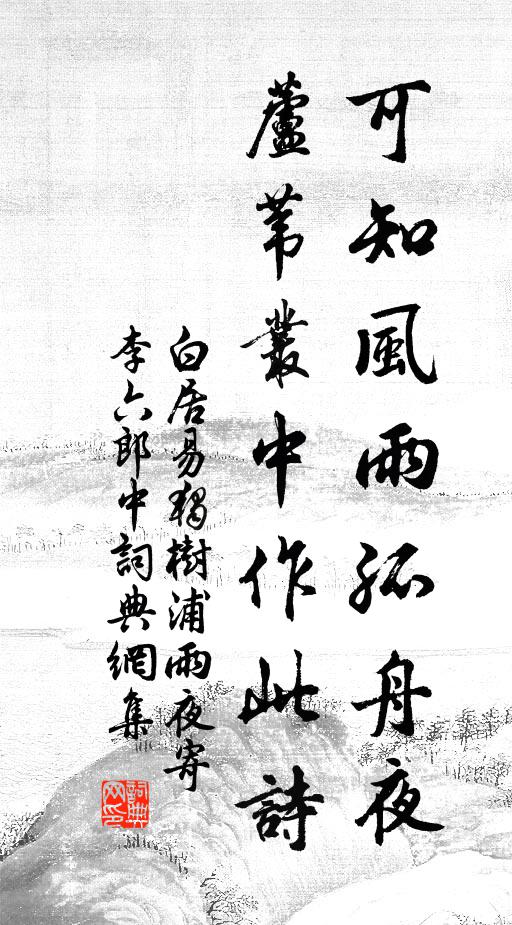 可知風雨孤舟夜
蘆葦叢中作此詩
白居易獨樹浦雨夜寄
李六郎中詞典網集
詞典
网印